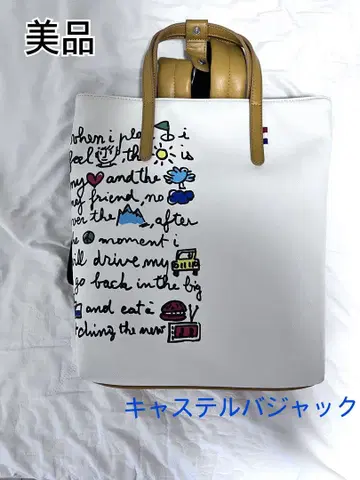 美品
when i play i
feel, the is
my and the
my friend, no
over the, after
the moment i
will drive my
go back in the big
and eat a
watching the new
キャステルバジャック